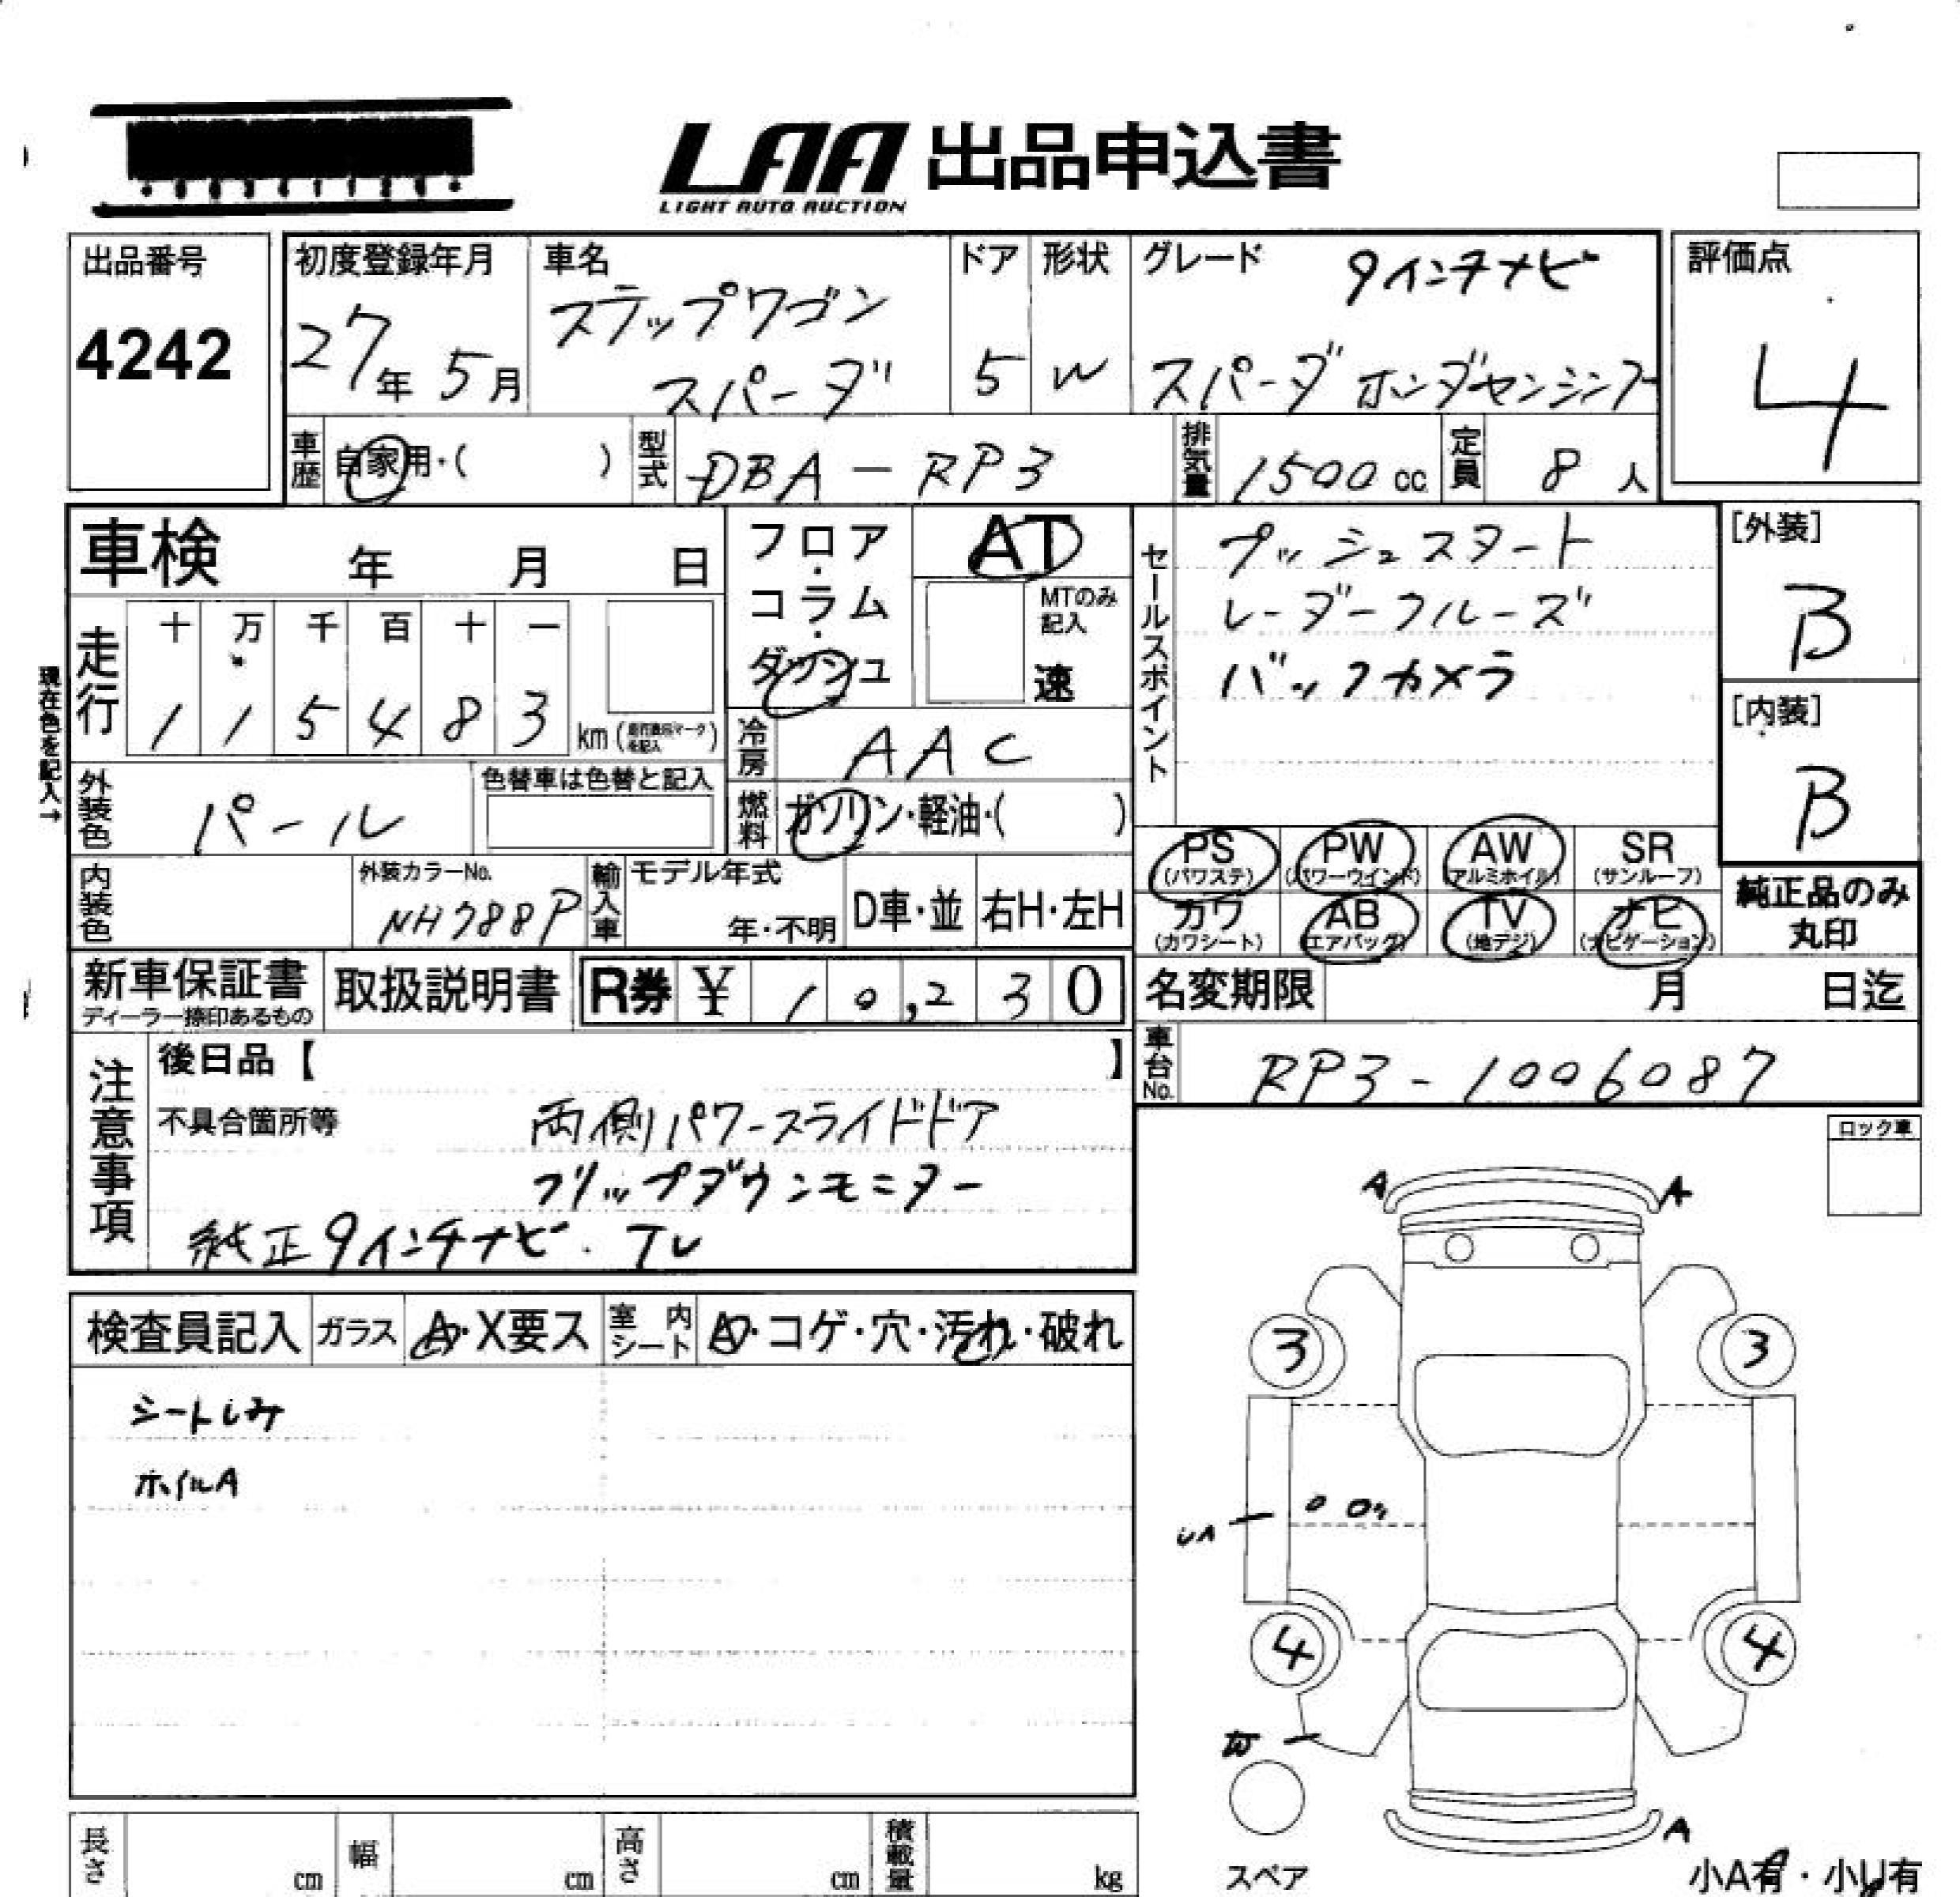 LAA 出品申込書
LIGHT AUTO AUCTION
出品番号
4242
初度登録年月
27年 5月
車名
ステップワゴン
スパーダ
ドア
5
形状
W
グレード
9インチナビ
スパーダ ホンダセンシング
評価点
4
車歴
自家用・( )
型式
DBA-RP3
排気量
1500 cc
定員
8 人
車検 年 月 日
フロア・コラム・ダッシュ
AT
MTのみ記入
速
セールスポイント
プッシュスタート
レーダークルーズ
バックカメラ
[外装]
B
[内装]
B
現在色を記入→
走行
十 万 千 百 十 一
1 1 5 4 8 3 km
冷房
AAC
外装色
パール
色替車は色替と記入
燃料
ガソリン・軽油・( )
PS (パワステ)
PW (パワーウインド)
AW (アルミホイル)
SR (サンルーフ)
カワ (カワシート)
AB (エアバッグ)
TV (地デジ)
ナビ (ナビゲーション)
純正品のみ丸印
内装色
外装カラーNo.
NH788P
輸入車
モデル年式
年・不明
D車・並
右H・左H
新車保証書
ディーラー捺印あるもの
取扱説明書
R券 ¥ 10,230
名変期限 月 日迄
車台No.
RP3-1006087
注意事項
後日品【 】
不具合箇所等
両側パワースライドドア
フリップダウンモニター
純正9インチナビ. TV
ロック車
検査員記入
ガラス
A・X要ス
室内シート
・コゲ・穴・汚れ・破れ
シートしみ
ホイルA
A A
3 3
UA
4 4
W
A
スペア
小A有・小U有
長さ cm
幅 cm
高さ cm
積載量 kg